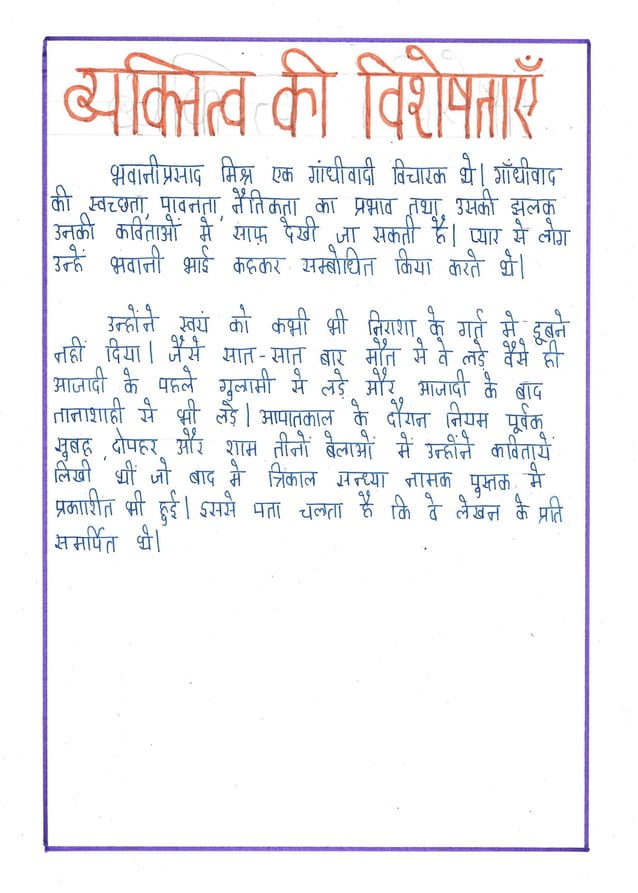 व्यक्तित्व की विशेषताएँ
भवानीप्रसाद मिश्र एक गांधीवादी विचारक थे। गाँधीवाद
की स्वच्छता, पावनता, नैतिकता का प्रभाव तथा उसकी झलक
उनकी कविताओं मे साफ़ देखी जा सकती है। प्यार से लोग
उन्हें भवानी भाई कहकर सम्बोधित किया करते थे।
उन्होंने स्वयं को कभी भी निराशा के गर्त मे डूबने
नहीं दिया। जैसे सात-सात बार मौत से वे लड़े वैसे ही
आजादी के पहले गुलामी से लड़े और आजादी के बाद
तानाशाही से भी लड़े। आपातकाल के दौरान नियम पूर्वक
सुबह, दोपहर और शाम तीनों बेलाओं में उन्होंने कवितायें
लिखी थीं जो बाद मे त्रिकाल सन्ध्या नामक पुस्तक मे
प्रकाशित भी हुई। इससे पता चलता है कि वे लेखन के प्रति
समर्पित थे।